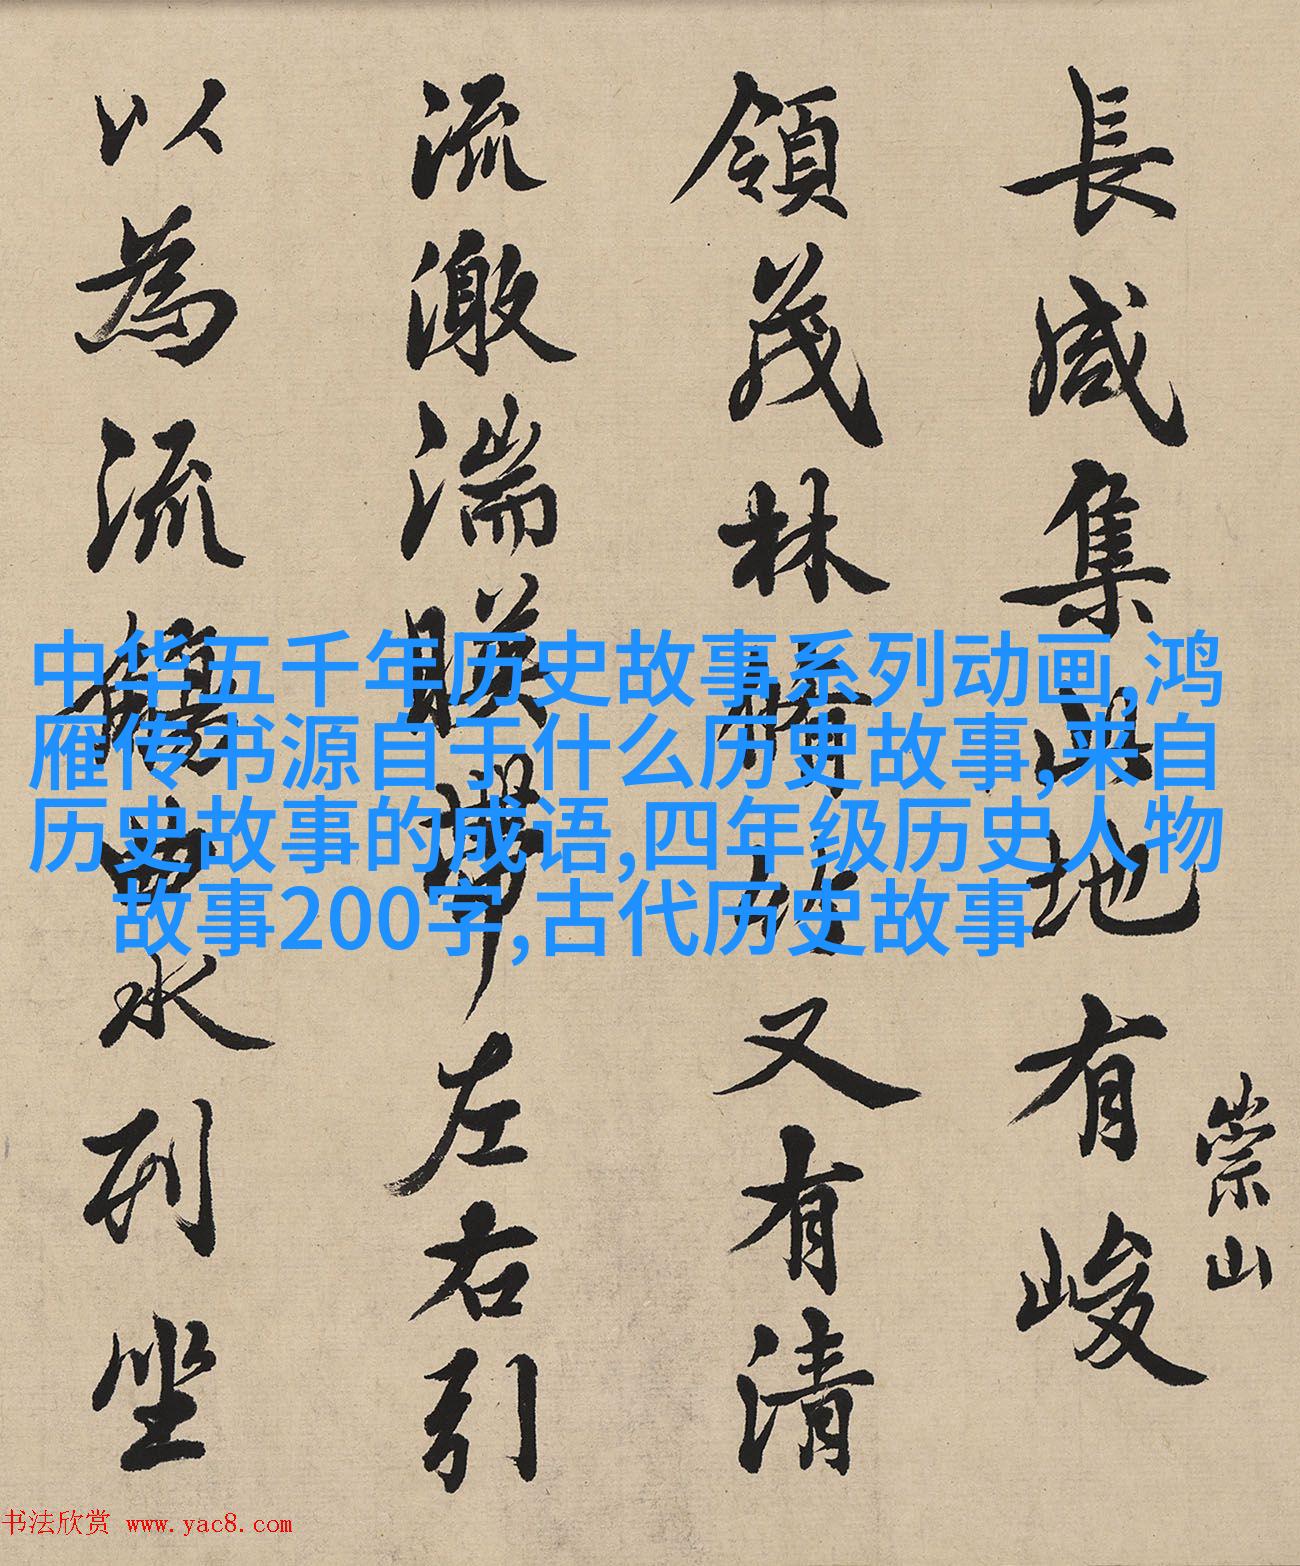 崇山
長咸集此地有峻
領茂林脩竹又有清
流激湍暎帶左右引
以為流觴曲水列坐
中华五千年历史故事系列动画,鸿
雁传书源自于什么历史故事,来自
历史故事的成语,四年级历史人物
故事200字,古代历史故事
书法欣赏 www.yac8.com